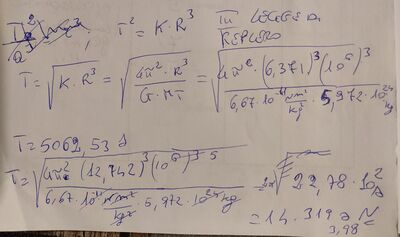 T² = K·R³ III LEGGE DI
KEPLERO
T = √K·R³ = √(4π²·R³ / G·MT) = √(4π²·(6,371)³(10⁶)³ / 6,67·10⁻¹¹ Nm²/kg² · 5,972·10²⁴ kg)
T = 5062,53 s
T = √(4π²(12,742)³(10⁶)³·s / 6,67·10⁻¹¹ Nm²/kg² · 5,972·10²⁴ kg)
= 14.319 s
3,98